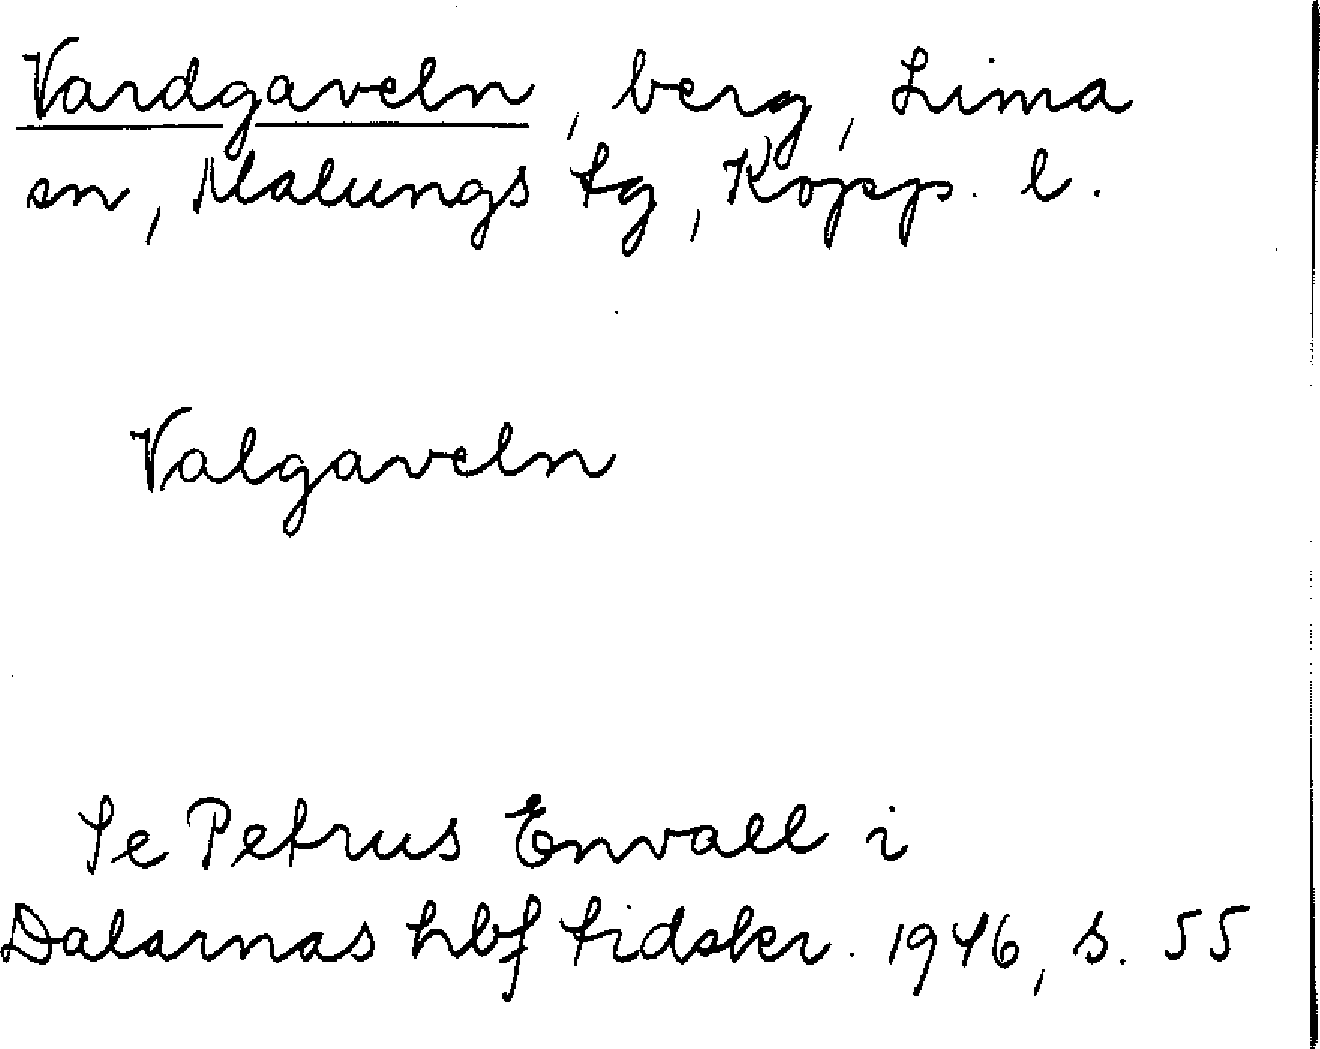 Vardgaveln, berg, Lima
sn, Malungs tg, Kopp. l.
Valgaveln
Se Petrus Envall i
Dalarnas hbf tidskr. 1946, s. 55